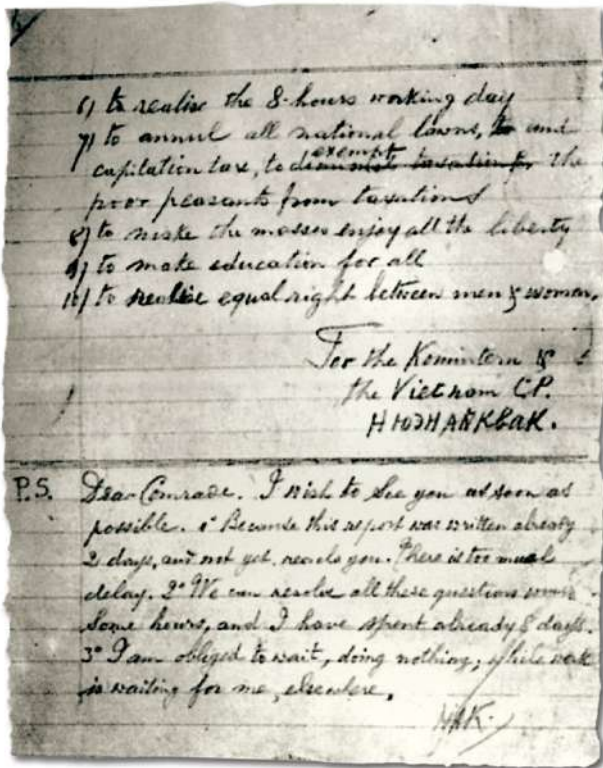 6) to realise the 8-hours working day
7) to annul all national lawns, to and
capitation tax, to exempt the
poor peasants from taxations
8) to make the masses enjoy all the liberty
9) to make education for all
10) to realise equal right between men & woman,
For the Komintern &
the Vietnam C.P.
P.S. Dear Comrade. I wish to see you as soon as
possible. 1° Because this report was written already
2 days, and not yet reach you. There is too
delay. 2° We can resolve all these questions
some hours, and I have spent already 8 days.
3° I am obliged to wait, doing nothing, while work
is waiting for me, elsewhere.
HAK.